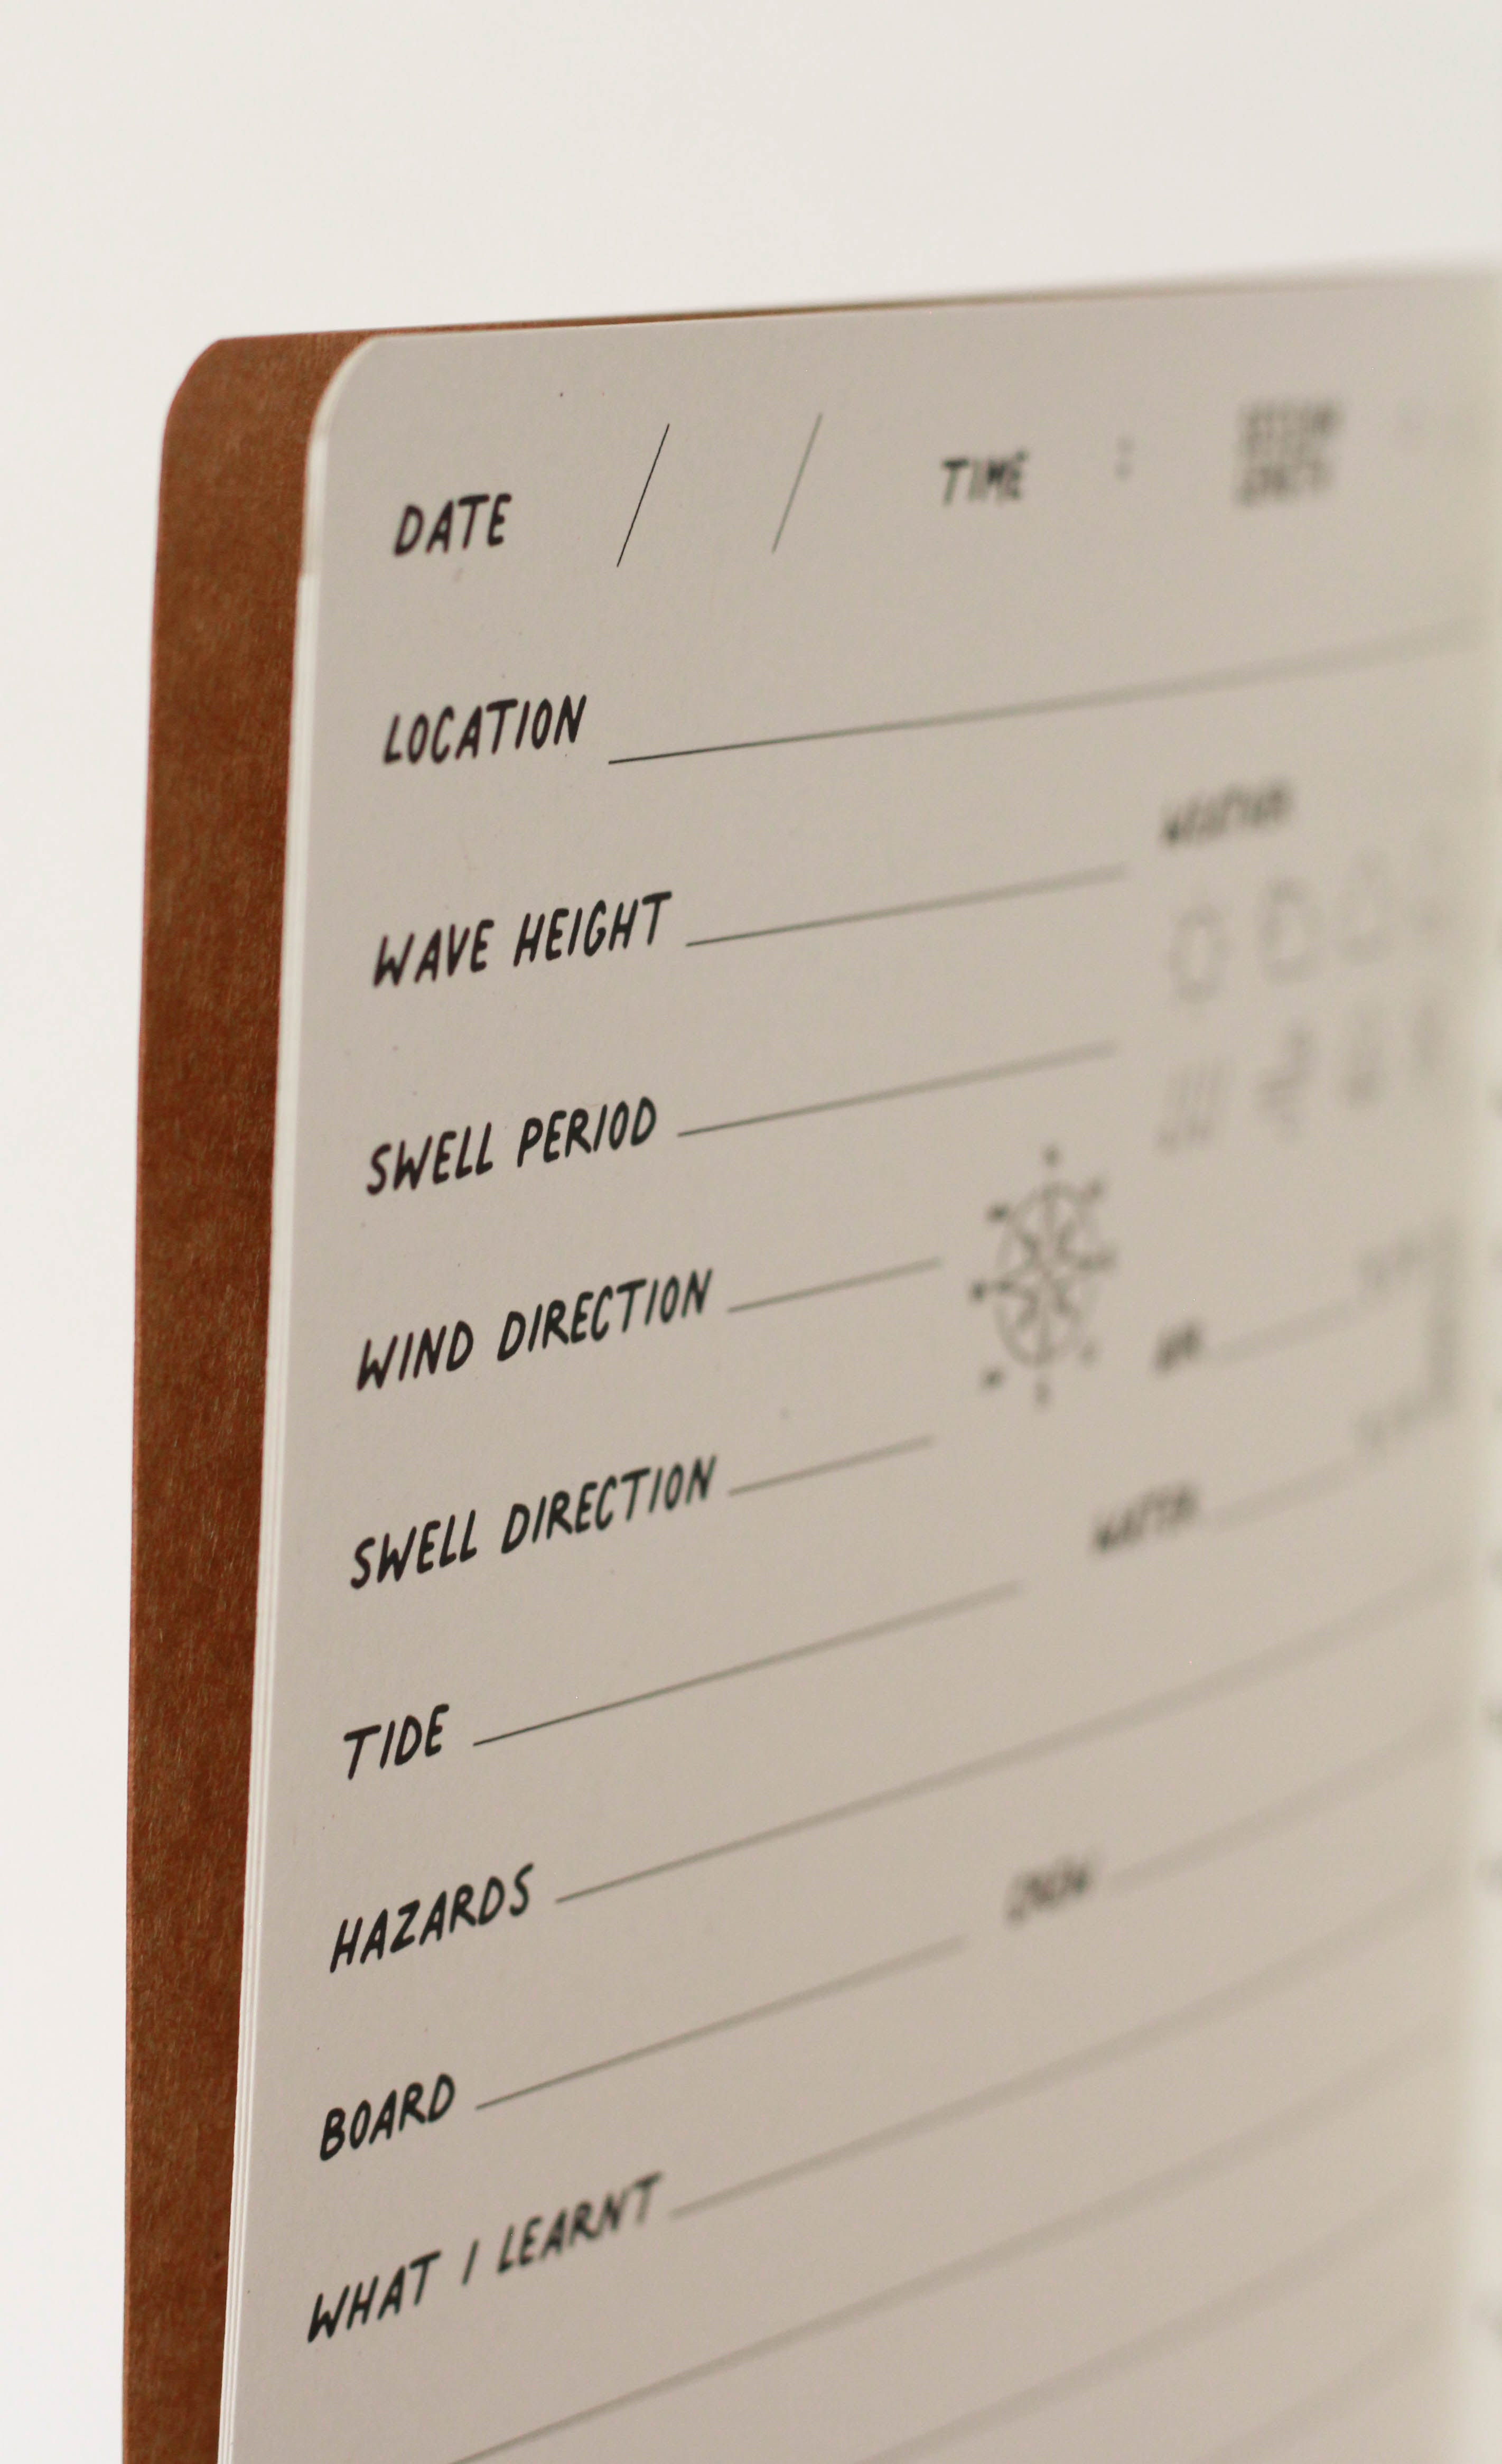 DATE / / TIME :
LOCATION
WEATHER
WAVE HEIGHT
SWELL PERIOD
WIND DIRECTION
AIR
SWELL DIRECTION
WATER
TIDE
HAZARDS
CREW
BOARD
WHAT I LEARNT